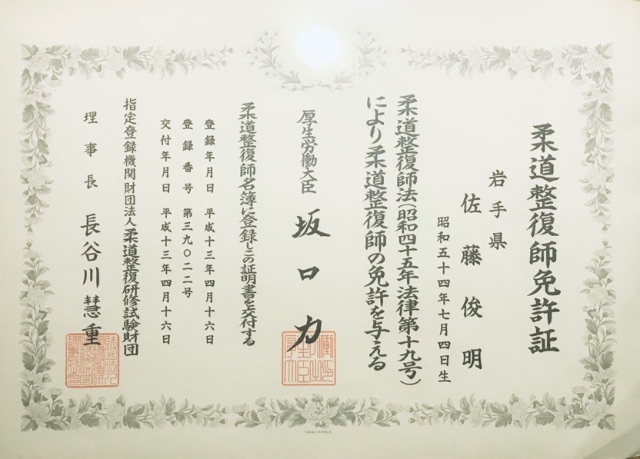 柔道整復師免許証
岩手県
佐藤俊明
昭和五十四年七月四日生
柔道整復師法(昭和四十五年法律第十九号)
により柔道整復師の免許を与える
厚生労働大臣 坂口力
柔道整復師名簿に登録しこの証明書を交付する
登録年月日 平成十三年四月十六日
登録番号 第三九〇二二号
交付年月日 平成十三年四月十六日
指定登録機関財団法人柔道整復研修試験財団
理事長 長谷川慧重